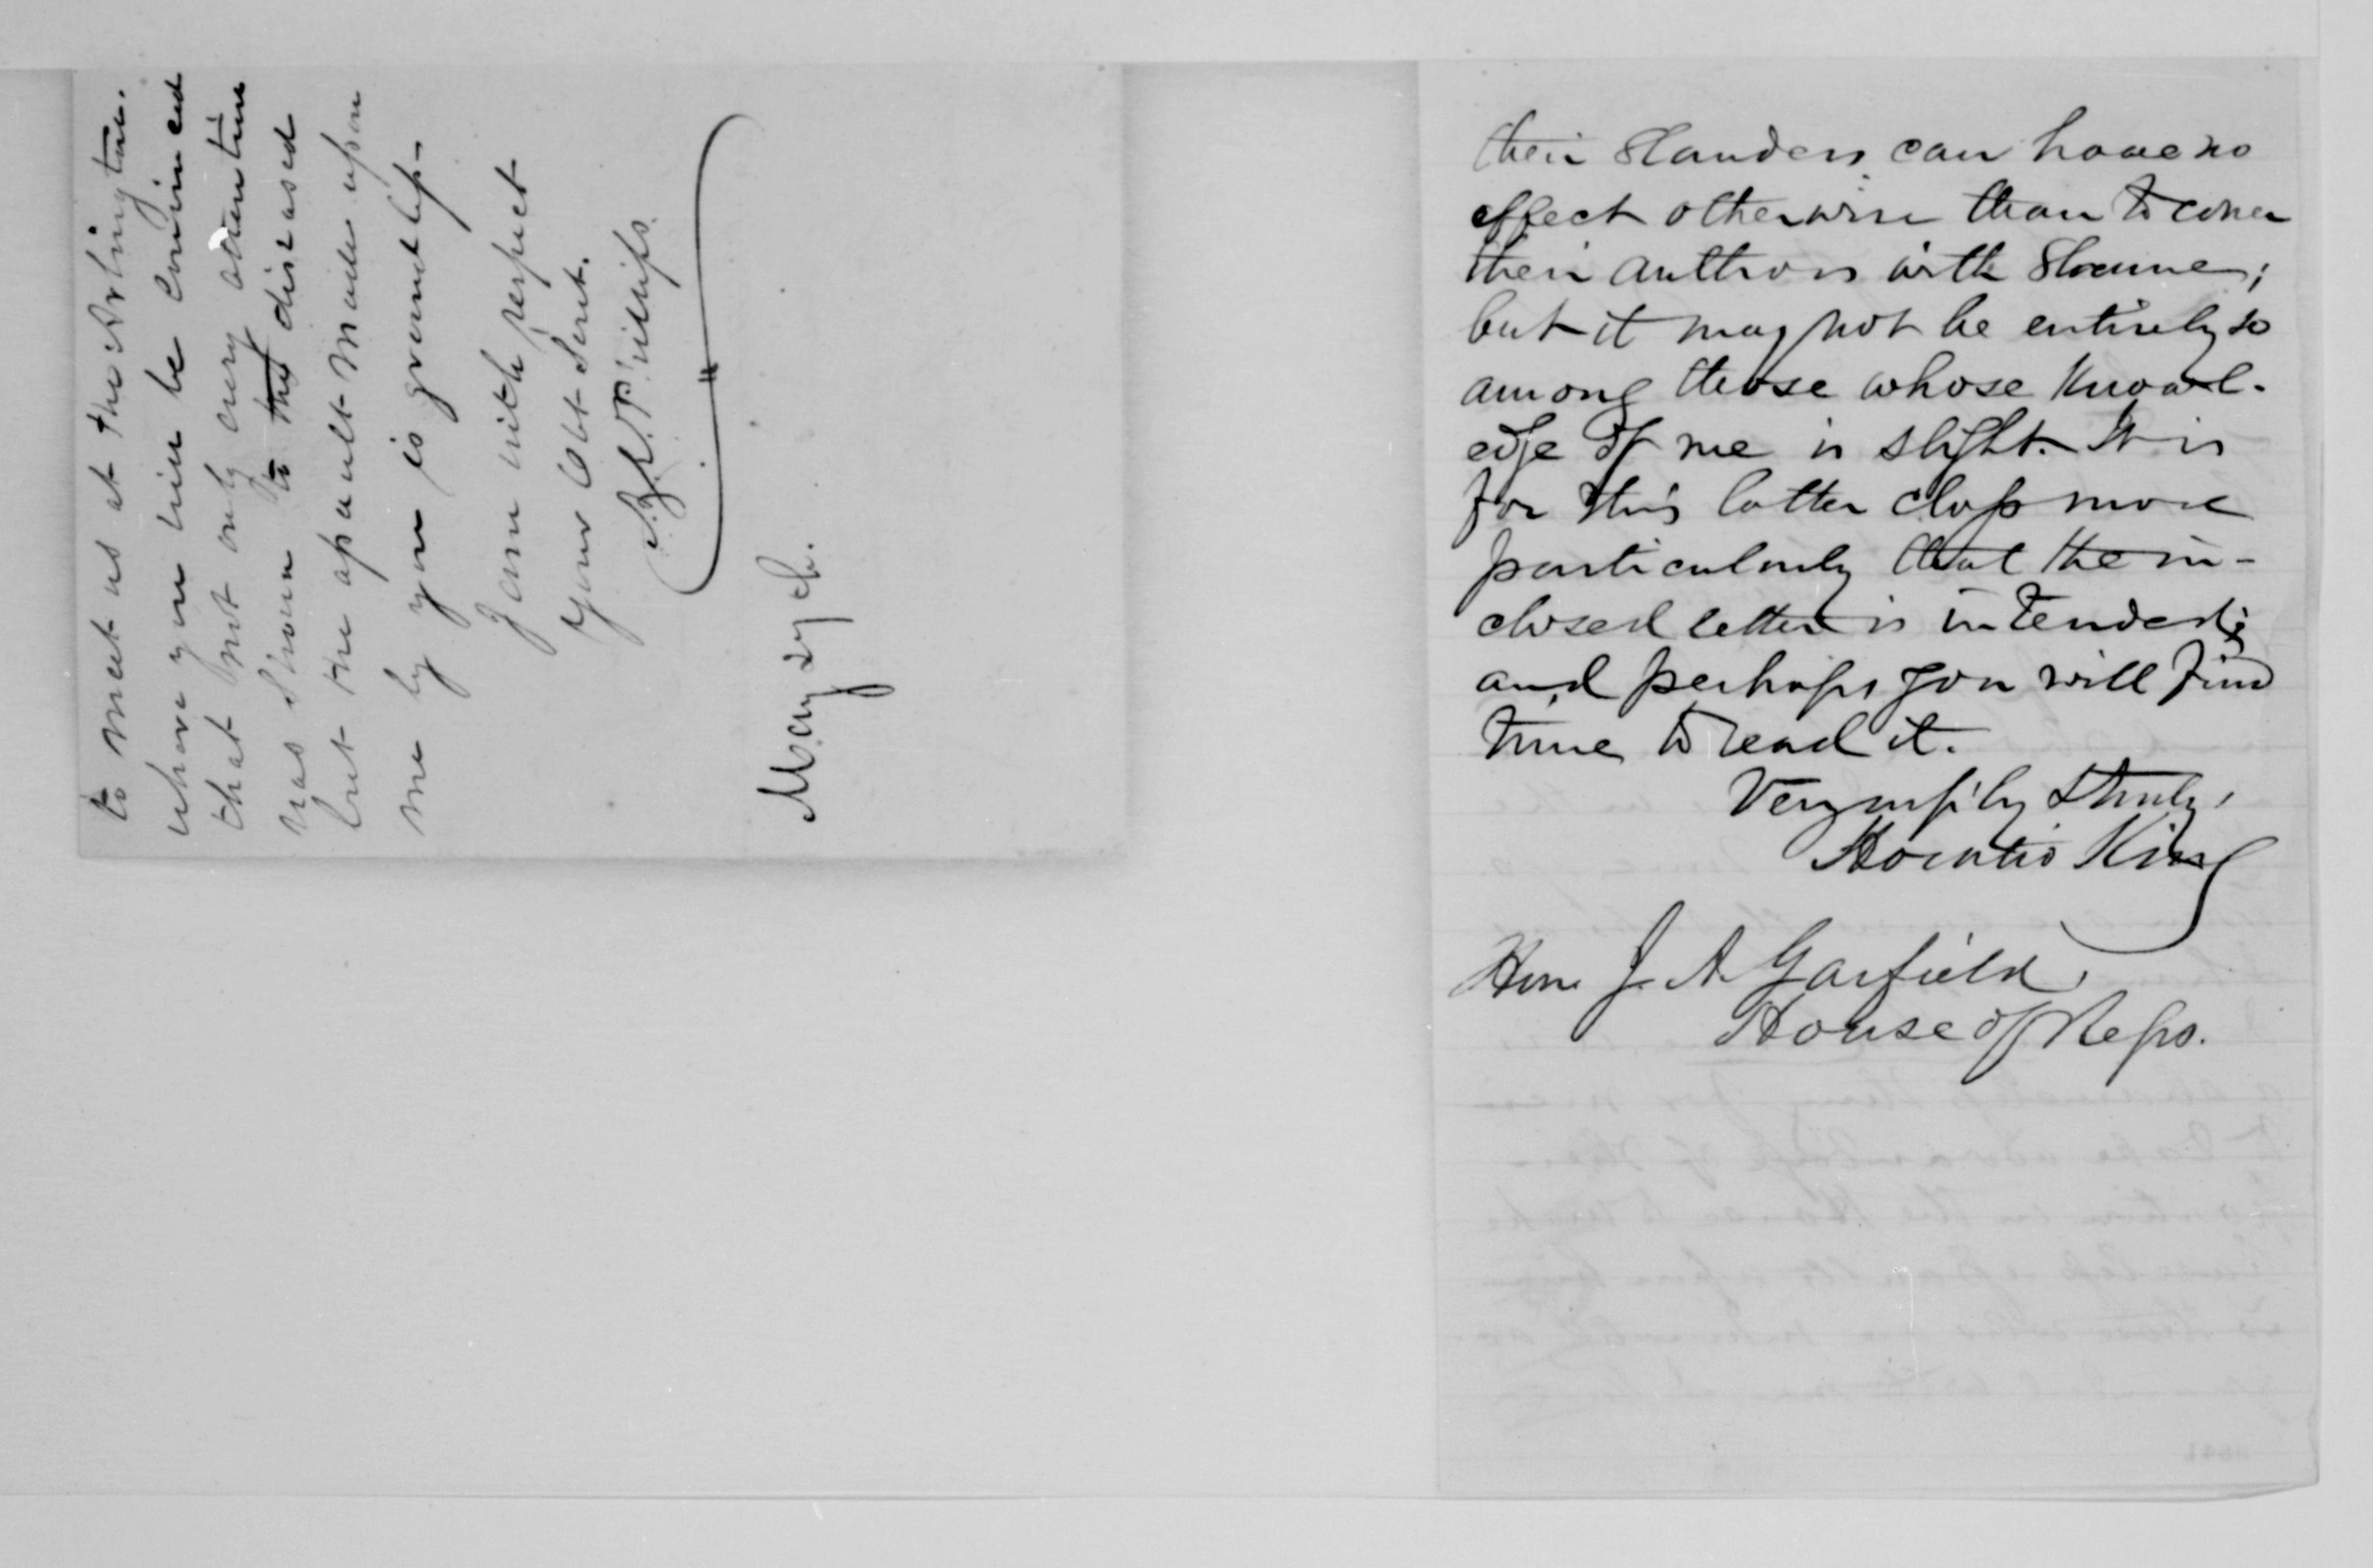 to meet us at the Arlington.
where you will be convinced
that not only every attention
was shown to the diseased
but the assault made upon
me by you is groundless
I am with respect
Your Obt Servt.
Phillips.
May 27th.
their slanders can have no
effect otherwise than to cover
their authors with shame;
but it may not be entirely so
among those whose knowl-
edge of me is slight. It is
for this latter class more
particularly that the in-
closed letter is intended;
and perhaps you will find
time to read it.
Very respfly & truly,
Horatio King
Hon. J. A. Garfield,
House of Reps.